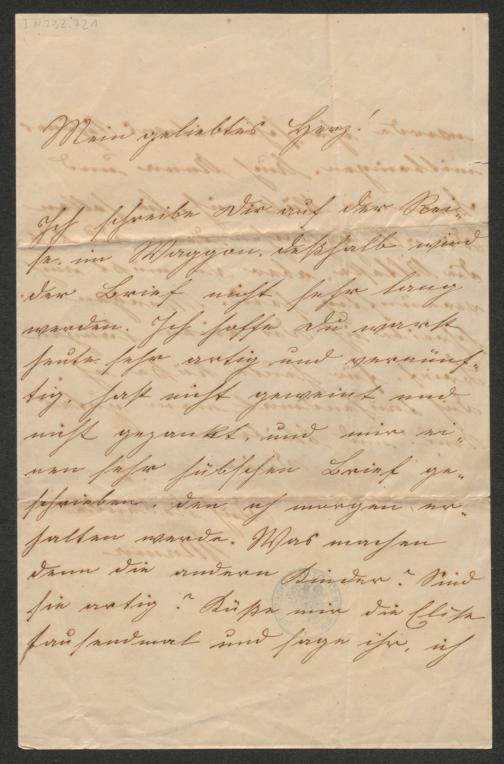 I.N. 232.721
Mein geliebtes Herz!
Ich schreibe Dir auf der Rei-
se, im Waggon, deßhalb wird
der Brief nicht sehr lang
werden. Ich hoffe Du warst
heute sehr artig und vernünf-
tig, hast nicht geweint und
nicht gezankt, und mir ei-
nen sehr hübschen Brief ge-
schrieben, den ich morgen er-
halten werde. Was machen
denn die andern Kinder? Sind
sie artig? Küße mir die Elise
tausendmal und sage ihr, ich